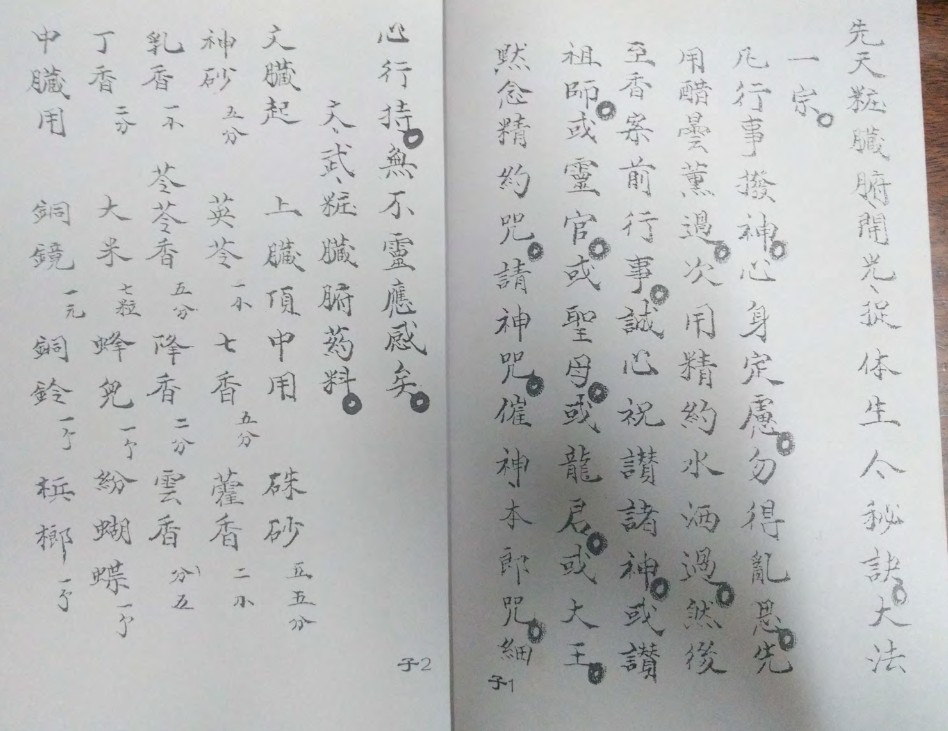 先天粧臟腑開光捉体生人秘訣大法
一宗
凡行事撥神心身定慮勿得亂思先
用醋曇薰過次用精約水洒過然後
至香案前行事誠心祝讃諸神或讃
祖師或靈官或聖母或龍君或大王
默念精約咒請神咒催神本郎咒細
子1
心行持無不靈應感矣
文武粧臟腑药料
文臟起 上臟頂中用 硃砂 五分
神砂 五分 英苓 一小 七香 五分 藿香 二小
乳香 一小 苓苓香 五分 降香 二分 雲香 分五
丁香 二分 大米 七粒 蜂兒 一个 紛蝴蝶 一个
中臟用 銅鏡 一元 銅鈴 一个 梹榔 一个
子2